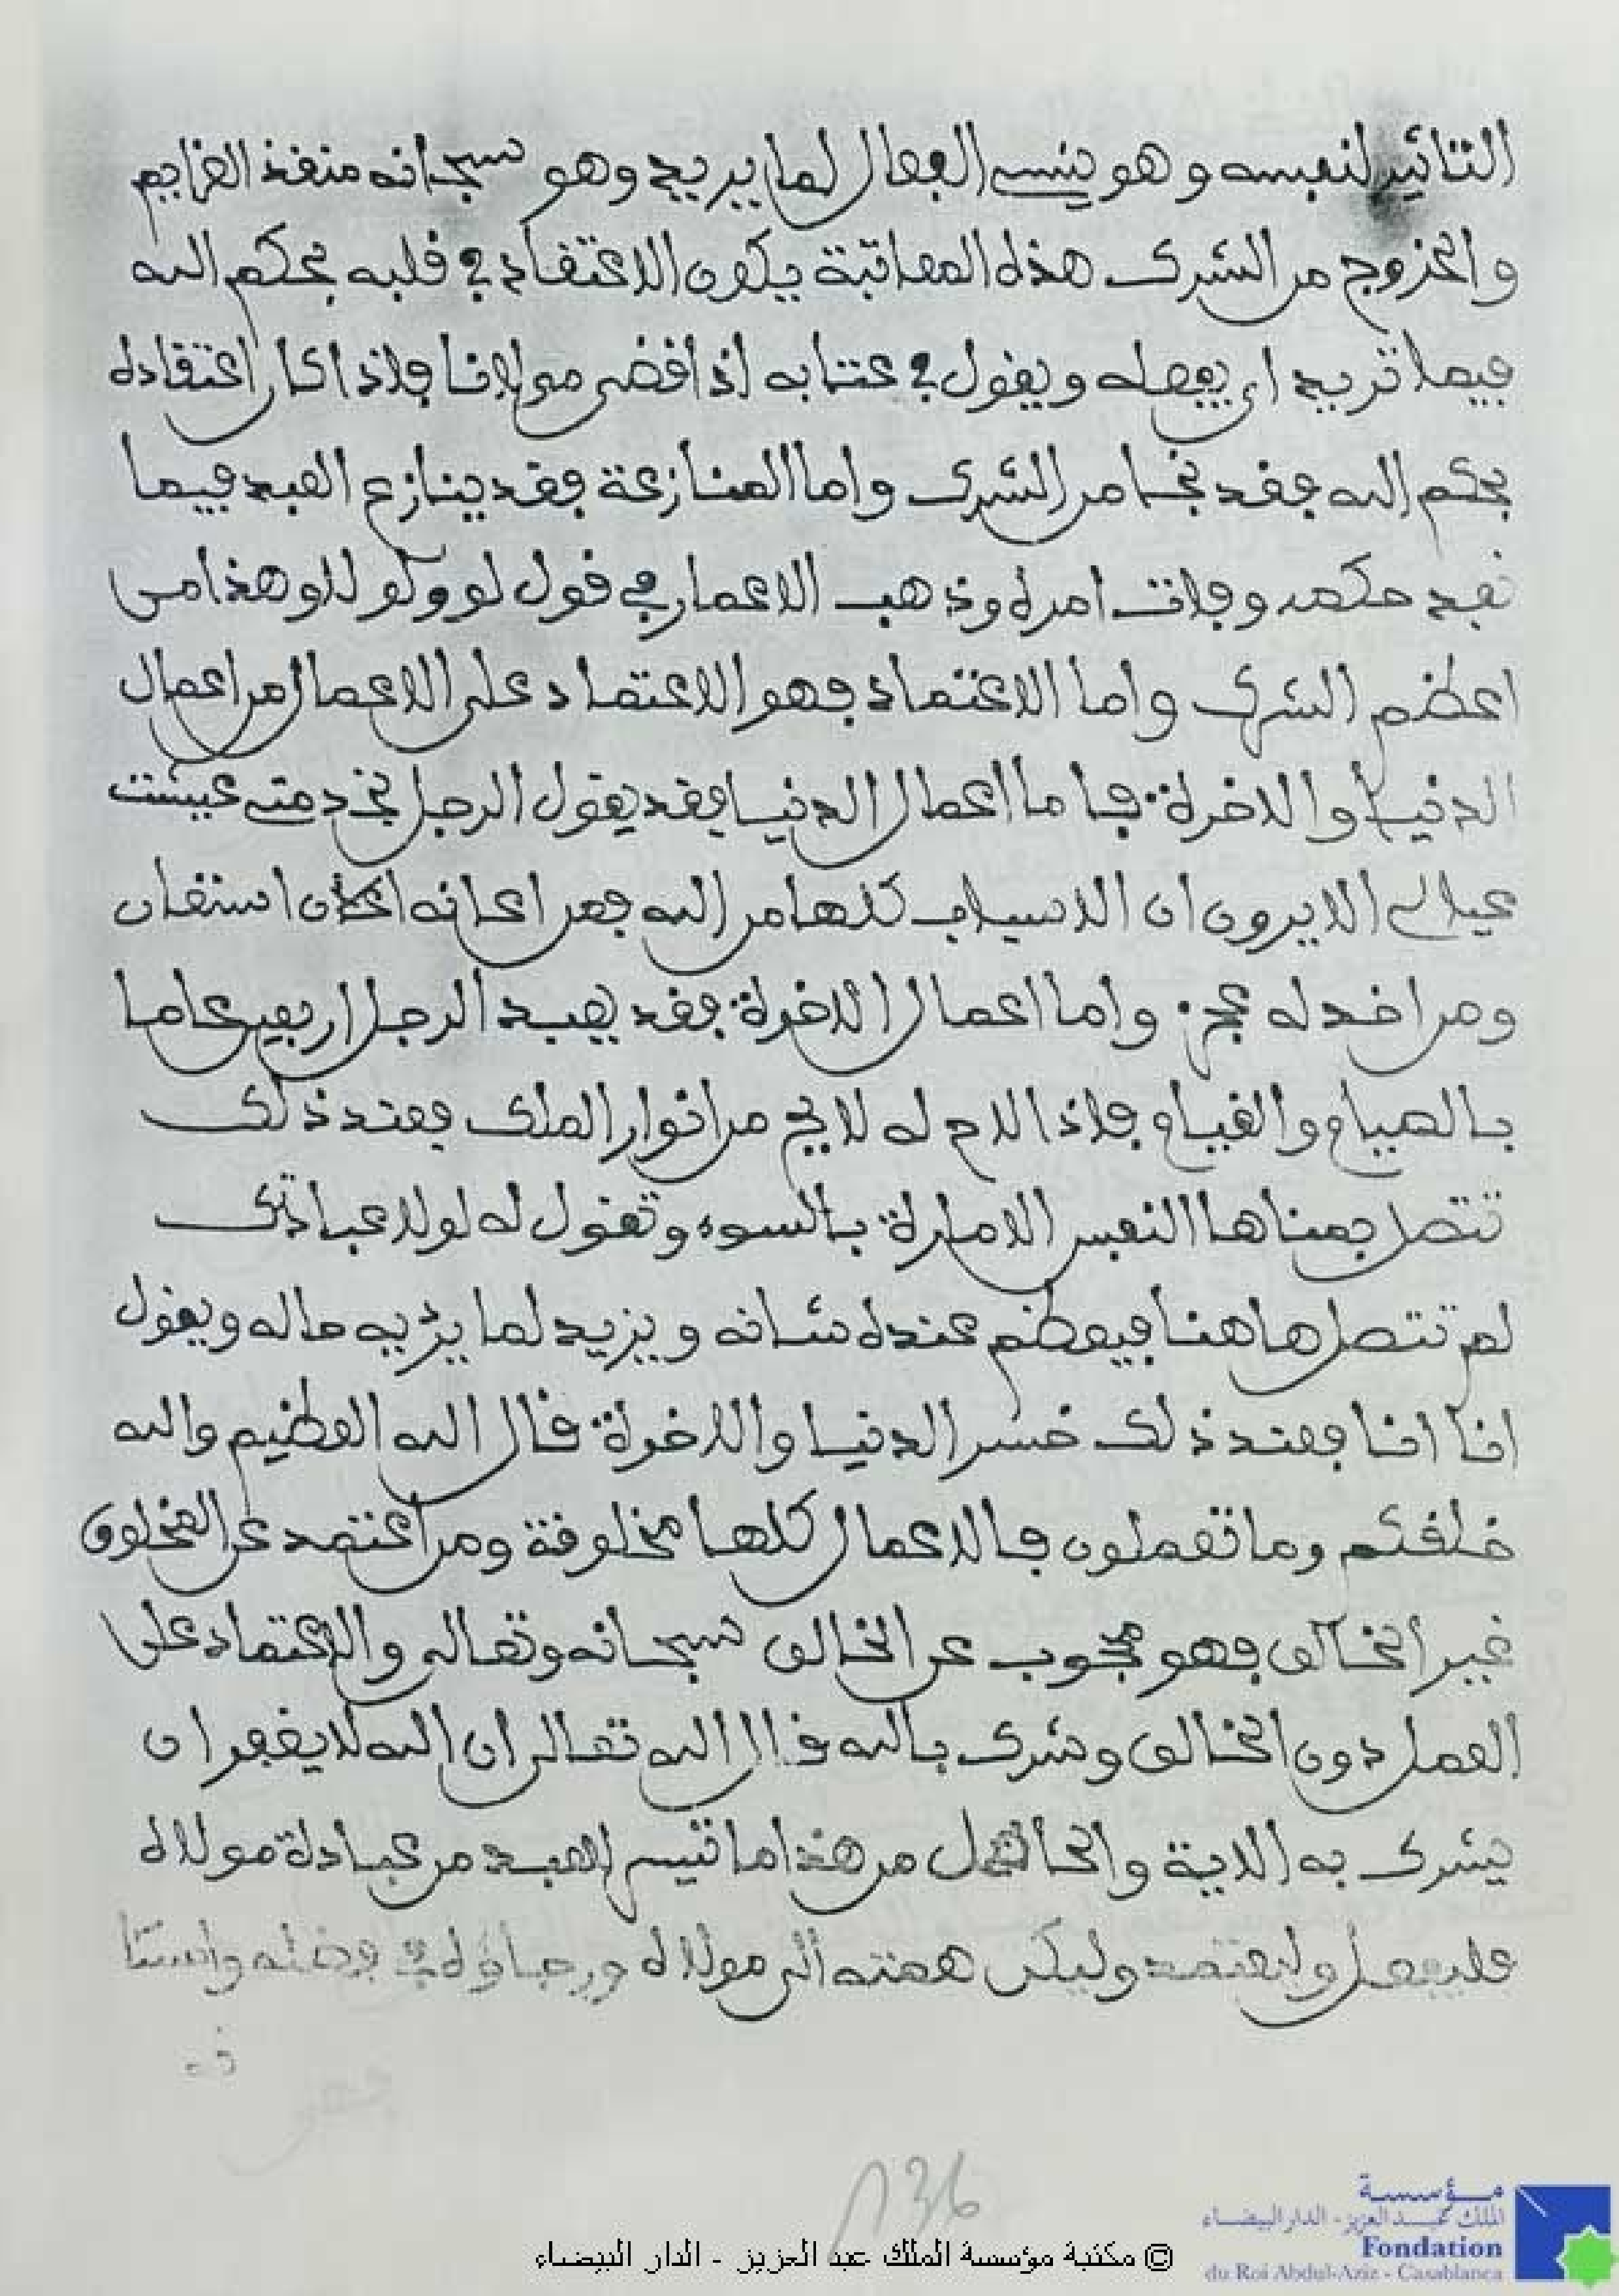 التاثير لنفسه وهو ينسى الفعال لما يريد وهو سبحانه منفذ العزايم
والخروج من الشرك هذه المعاتبة يكون الاعتقاد في قلبه بحكم الله
فيما تريد ان يفعله ويقول في عتابه اذا قضى مولانا فاذا كان اعتقاده
بحكم الله فقد نجا من الشرك واما المنازعة فقد ينازع العبد فيما
نفد حكمه وفات امره وذهب الاعمار في قول لو ولولا وهذا من
اعظم الشرك واما الاعتماد فهو الاعتماد على الاعمال من اعمال
الدنيا والاخرة فاما اعمال الدنيا فقد يقول الرجل بخدمتي عيشت
عيالي الا يرون ان الاسباب كلها من الله فمن اعانه استعان
ومن اخد له عجز واما اعمال الاخرة فقد يعبد الرجل اربعين عاما
بالصيام والقيام فاذا الاح له لايح من انوار الملك فعند ذلك
تتصل بمناها النفس الامارة بالسوء وتقول له لولا عبادتك
لم تتصل هاهنا فيعظم عنده شانه ويزيد لما يزيه حاله ويقول
انا انا فعند ذلك خسر الدنيا والاخرة قال الله العظيم والله
خلقكم وما تعملون فالاعمال كلها مخلوقة ومن اعتمد عن المخلوق
غير الخالق فهو محجوب عن الخالق سبحانه وتعالى والاعتماد على
العمل دون الخالق وشرك بالله قال الله تعالى ان الله لا يغفر ان
يشرك به الاية والحاصل من هذا ما تيسر للعبد من عبادة مولاه
فليفعل وليعتمد وليكن همته الى مولاه ورجاؤه في فضله وامتنا
نه
136
© مكتبة مؤسسة الملك عبد العزيز - الدار البيضاء
مؤسسة
الملك عبد العزيز - الدار البيضاء
Fondation
du Roi Abdul-Aziz - Casablanca